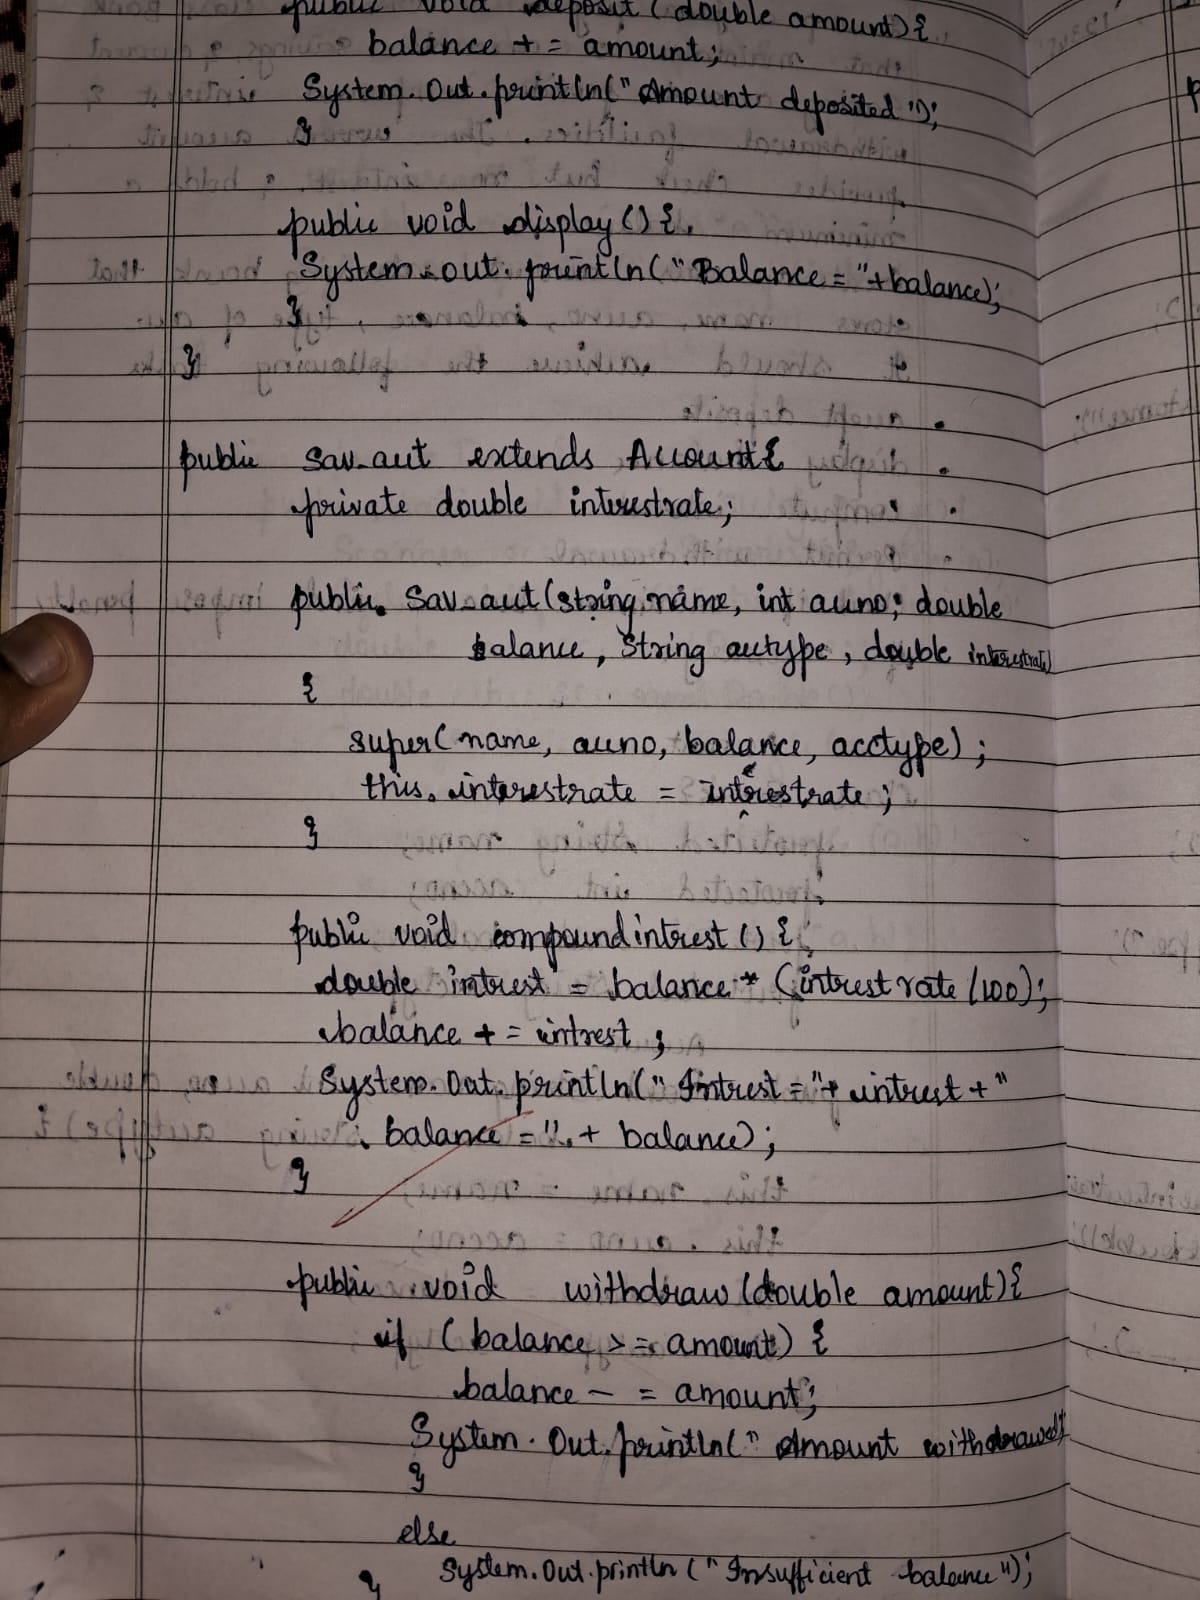 public void deposit (double amount){
balance += amount;
System.Out.println("Amount deposited");
}
public void display(){
System.out.println("Balance = "+balance);
}
}
public Sav_acct extends Account{
private double interestrate;
public Sav_acct(string name, int accno; double
balance, String acctype, double interestrate)
{
super(name, accno, balance, acctype);
this.interestrate = interestrate;
}
public void compoundintrest () {
double intrest = balance * (intrest rate /100);
balance += intrest ;
System.Out.println(" Intrest = "+ intrest + "
balance = " + balance);
}
public void withdraw (double amount){
if ( balance >= amount) {
balance -= amount;
System.Out.println(" Amount withdrawed
}
else
System.Out.println (" Insufficient balance ");
}